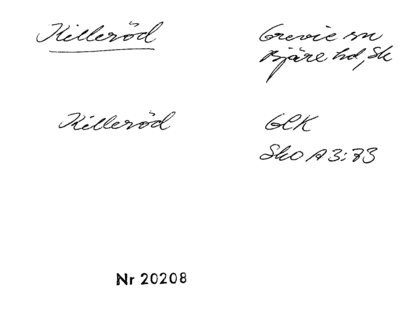 Killeröd
Grevie sn
Bjäre hd, Sk
Killeröd
GEK
Sko A3:73
Nr 20208